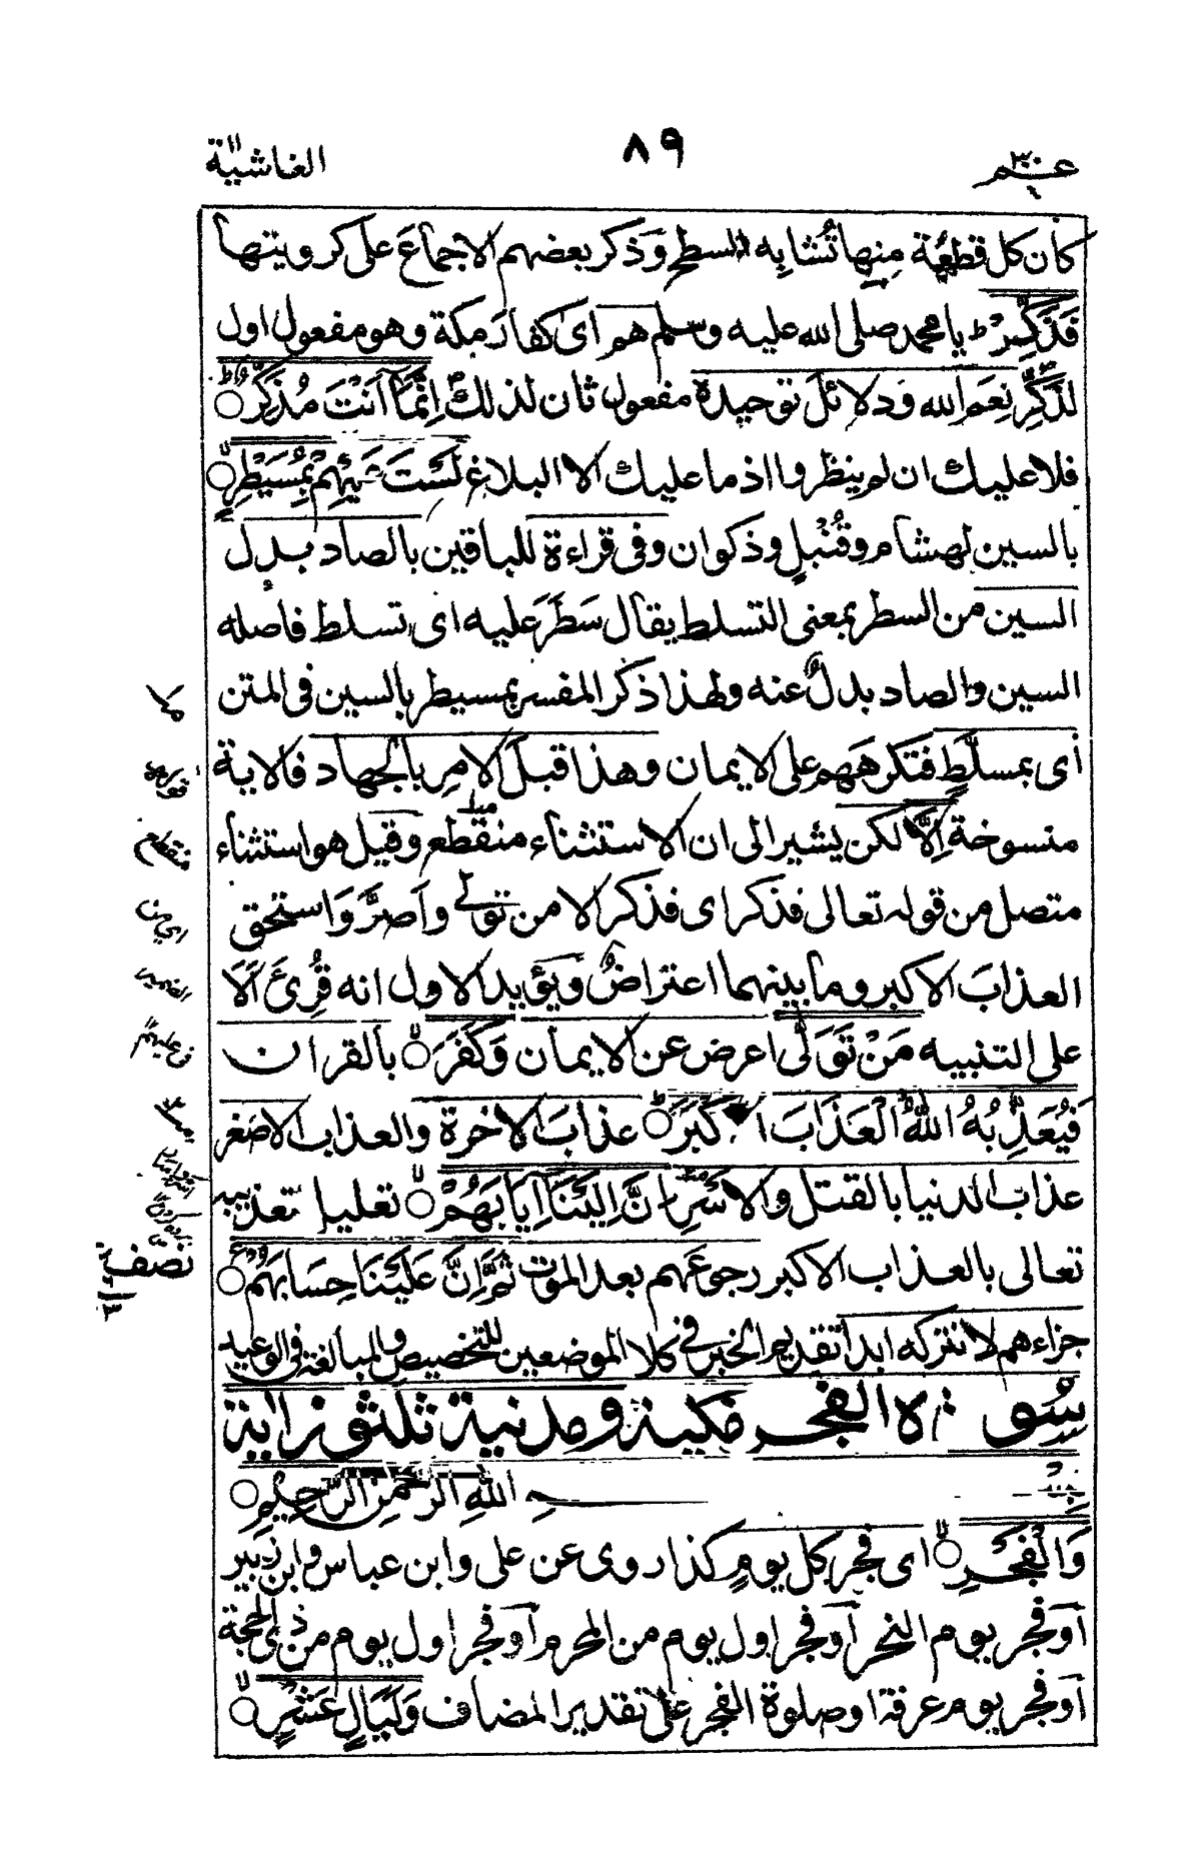 عم ٣٠
٨٩
الغاشية
كان كل قطعة منها تُشابِه السطح وَذكر بعضهم الاجماعَ على كرويتها
فَذَكِّرْ يا محمد صلى الله عليه وسلم هم اى كفارَ مكة وهو مفعول اول
لذَكِّرْ نِعَمَ الله وَدلائلَ توحيدِه مفعول ثان لذلك اِنَّمَآ اَنْتَ مُذَكِّرٌ ○
فلا عليك ان لم ينظروا اذ ما عليك الا البلاغ لَسْتَ عَلَيْهِمْ بِمُسَيْطِرٍ ○
بالسين لهشام وقُنْبُلٍ وذكوان وفى قراءة للباقين بالصاد بدل
السين من السطر بمعنى التسلط يقال سَطَرَ عليه اى تسلط فاصله
السين والصاد بدلٌ عنه ولهذا ذكر المفسر بمسيطر بالسين فى المتن
أى بمسلَّطٍ فتكرهَهم على الايمان وهذا قبلَ الامرِ بالجهاد فالاية
منسوخة اِلَّا لكن يشير الى ان الاستثناء منقطع وقيل هو استثناء
متصل من قوله تعالى فذكر اى فذكر الا من تولى واَصرَّ وَاستحق
العذابَ الاكبر وما بينهما اعتراضٌ ويؤيد الاول انه قُرِئَ اَلَا
على التنبيه مَنْ تَوَلّٰى اعرض عن الايمان وَكَفَرَ ○ بالقران
فَيُعَذِّبُهُ اللّٰهُ الْعَذَابَ الْاَكْبَرَ ○ عذابَ الاخرة والعذاب الاصغر
عذابَ الدنيا بالقتل والاَسْرِ اِنَّ اِلَيْنَآ اِيَابَهُمْ ○ تعليل لتعذيبه
تعالى بالعذاب الاكبر رجوعَهم بعد الموت ثُمَّ اِنَّ عَلَيْنَا حِسَابَهُمْ ○
جزاءهم لا نتركه ابدا تقديم الخبر فى كلا الموضعين للتخصيص والمبالغة فى الوعيد
سُورة الفجر مكية او مدنية ثلثون اية
بسم اللهِ الرَّحْمٰنِ الرَّحِيْمِ ○
وَالْفَجْرِ ○ اى فجرِ كل يومٍ كذا روى عن على وابن عباس وابن زبير
اَو فجر يوم النحر اَو فجر اول يوم من المحرم اَو فجر اول يوم من ذى الحجة
اَو فجر يوم عرفة او صلوة الفجر على تقدير المضاف وَلَيَالٍ عَشْرٍ ○
منقطع
اى من
الضمير
فى عليهم
نصف